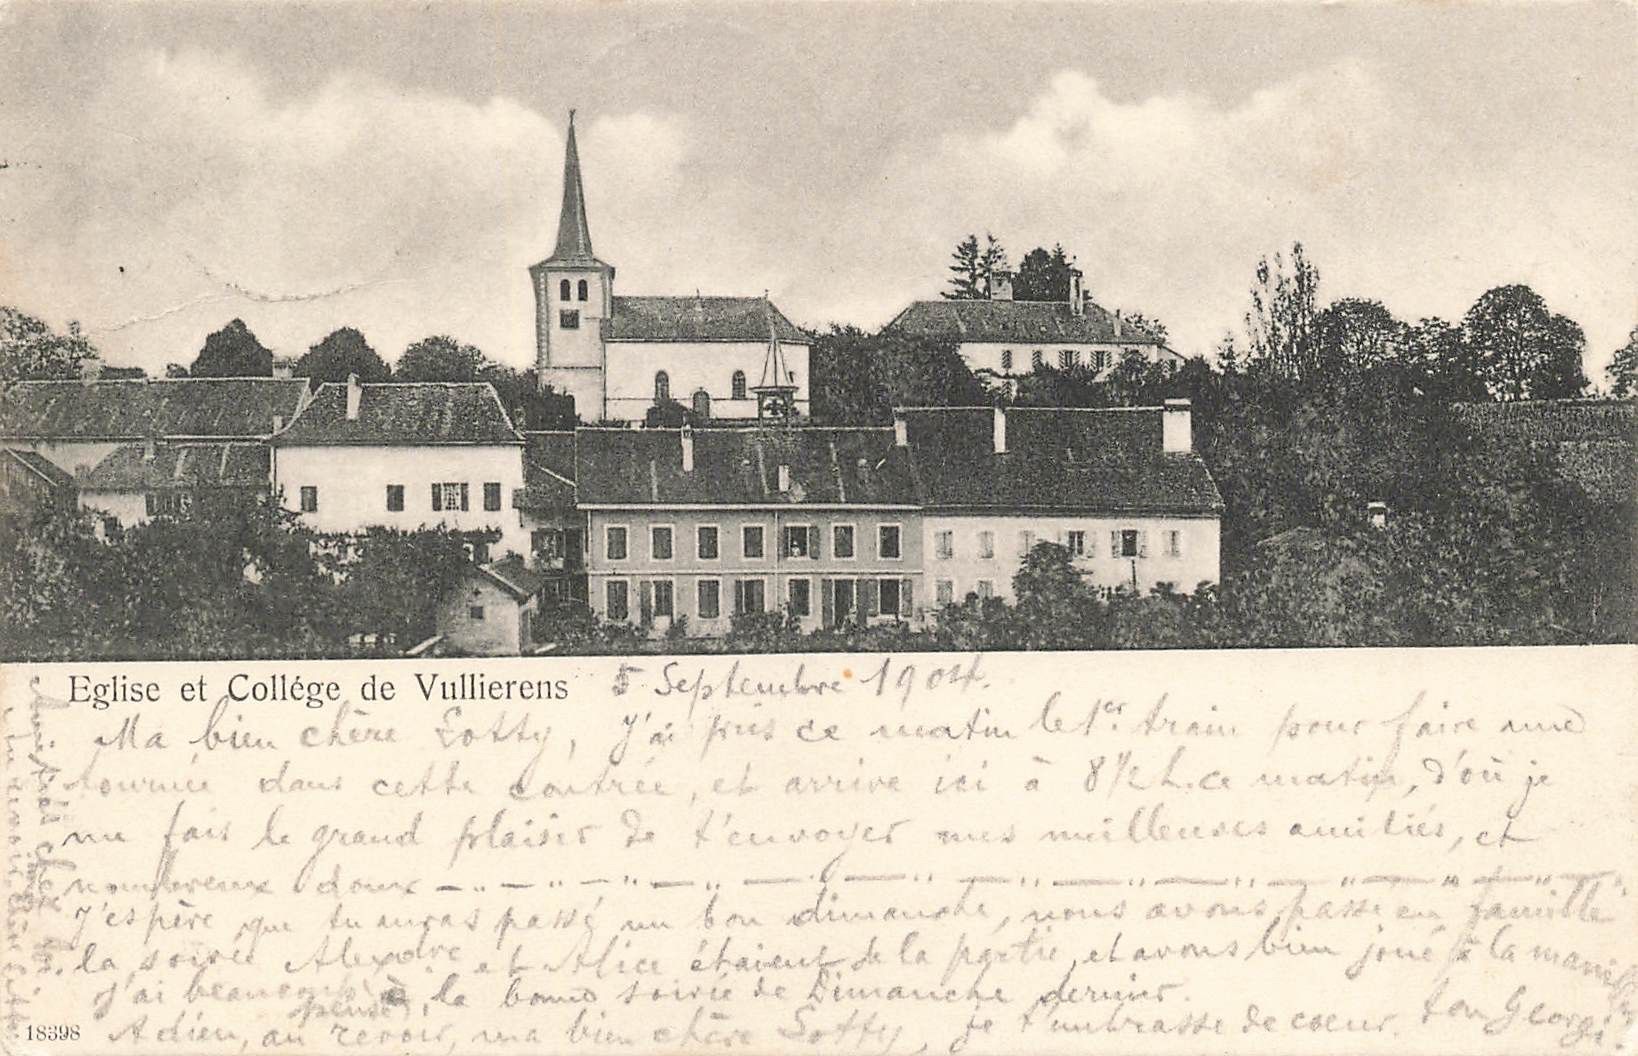 Eglise et Collége de Vullierens 5 Septembre 1904.
Ma bien chère Lotty, J'ai pris ce matin le 1er. train pour faire une
tournée dans cette contrée, et arrive ici à 8 1/2 h. ce matin, d'où je
me fais le grand plaisir de t'envoyer mes meilleures amitiés, et
nombreux doux
J'espère que tu auras passé un bon dimanche, nous avons passé en famille
la soirée Alexdre et Alice étaient de la partie, et avons bien joué à la manille
J'ai beaucoup pensé à la bonne soirée de Dimanche dernier.
Adieu, au revoir, ma bien chère Lotty, je t'embrasse de coeur. ton Georgi.
18398